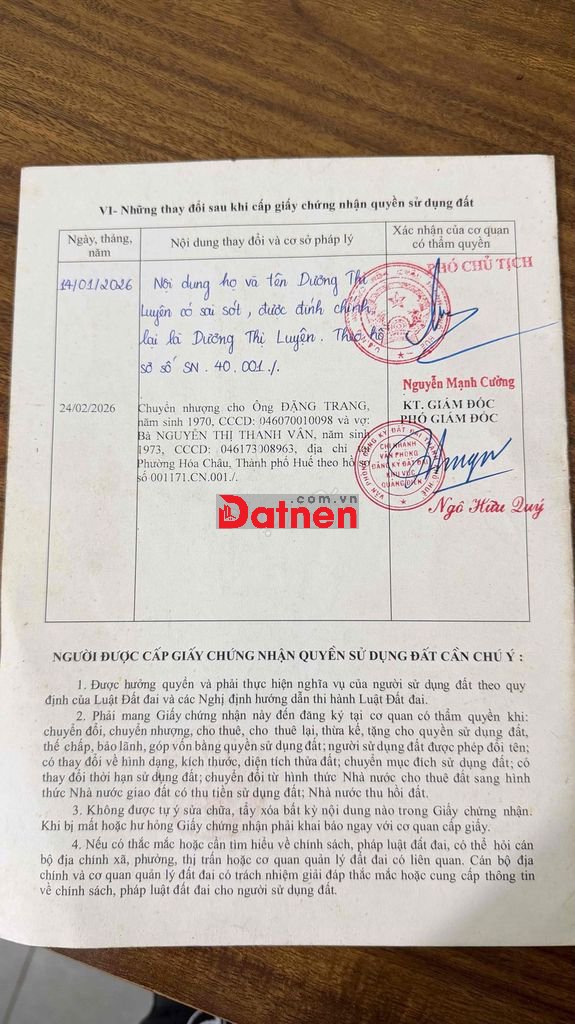 VI- Những thay đổi sau khi cấp giấy chứng nhận quyền sử dụng đất
Ngày, tháng, năm
Nội dung thay đổi và cơ sở pháp lý
Xác nhận của cơ quan có thẩm quyền
14/01/2026
Nội dung họ và tên Dương Thi
Luyên có sai sót, được đính chính
lại là Dương Thị Luyện. Theo hồ
sơ số SN.40.001./.
PHÓ CHỦ TỊCH
Nguyễn Mạnh Cường
24/02/2026
Chuyển nhượng cho Ông ĐẶNG TRANG,
năm sinh 1970, CCCD: 046070010098 và vợ:
Bà NGUYỄN THỊ THANH VÂN, năm sinh
1973, CCCD: 046173008963, địa chỉ tại
Phường Hóa Châu, Thành phố Huế theo hồ sơ
số 001171.CN.001./.
KT. GIÁM ĐỐC
PHÓ GIÁM ĐỐC
VĂN PHÒNG ĐĂNG KÝ ĐẤT ĐAI THÀNH PHỐ HUẾ
CHI NHÁNH
VĂN PHÒNG
ĐĂNG KÝ ĐẤT ĐAI
KHU VỰC
QUẢNG ĐIỀN
Ngô Hữu Quý
.com.vn
Datnen
NGƯỜI ĐƯỢC CẤP GIẤY CHỨNG NHẬN QUYỀN SỬ DỤNG ĐẤT CẦN CHÚ Ý :
1. Được hưởng quyền và phải thực hiện nghĩa vụ của người sử dụng đất theo quy
định của Luật Đất đai và các Nghị định hướng dẫn thi hành Luật Đất đai.
2. Phải mang Giấy chứng nhận này đến đăng ký tại cơ quan có thẩm quyền khi:
chuyển đổi, chuyển nhượng, cho thuê, cho thuê lại, thừa kế, tặng cho quyền sử dụng đất,
thế chấp, bảo lãnh, góp vốn bằng quyền sử dụng đất; người sử dụng đất được phép đổi tên;
có thay đổi về hình dạng, kích thước, diện tích thửa đất; chuyển mục đích sử dụng đất; có
thay đổi thời hạn sử dụng đất; chuyển đổi từ hình thức Nhà nước cho thuê đất sang hình
thức Nhà nước giao đất có thu tiền sử dụng đất; Nhà nước thu hồi đất.
3. Không được tự ý sửa chữa, tẩy xóa bất kỳ nội dung nào trong Giấy chứng nhận.
Khi bị mất hoặc hư hỏng Giấy chứng nhận phải khai báo ngay với cơ quan cấp giấy.
4. Nếu có thắc mắc hoặc cần tìm hiểu về chính sách, pháp luật đất đai, có thể hỏi cán
bộ địa chính xã, phường, thị trấn hoặc cơ quan quản lý đất đai có liên quan. Cán bộ địa
chính và cơ quan quản lý đất đai có trách nhiệm giải đáp thắc mắc hoặc cung cấp thông tin
về chính sách, pháp luật đất đai cho người sử dụng đất.